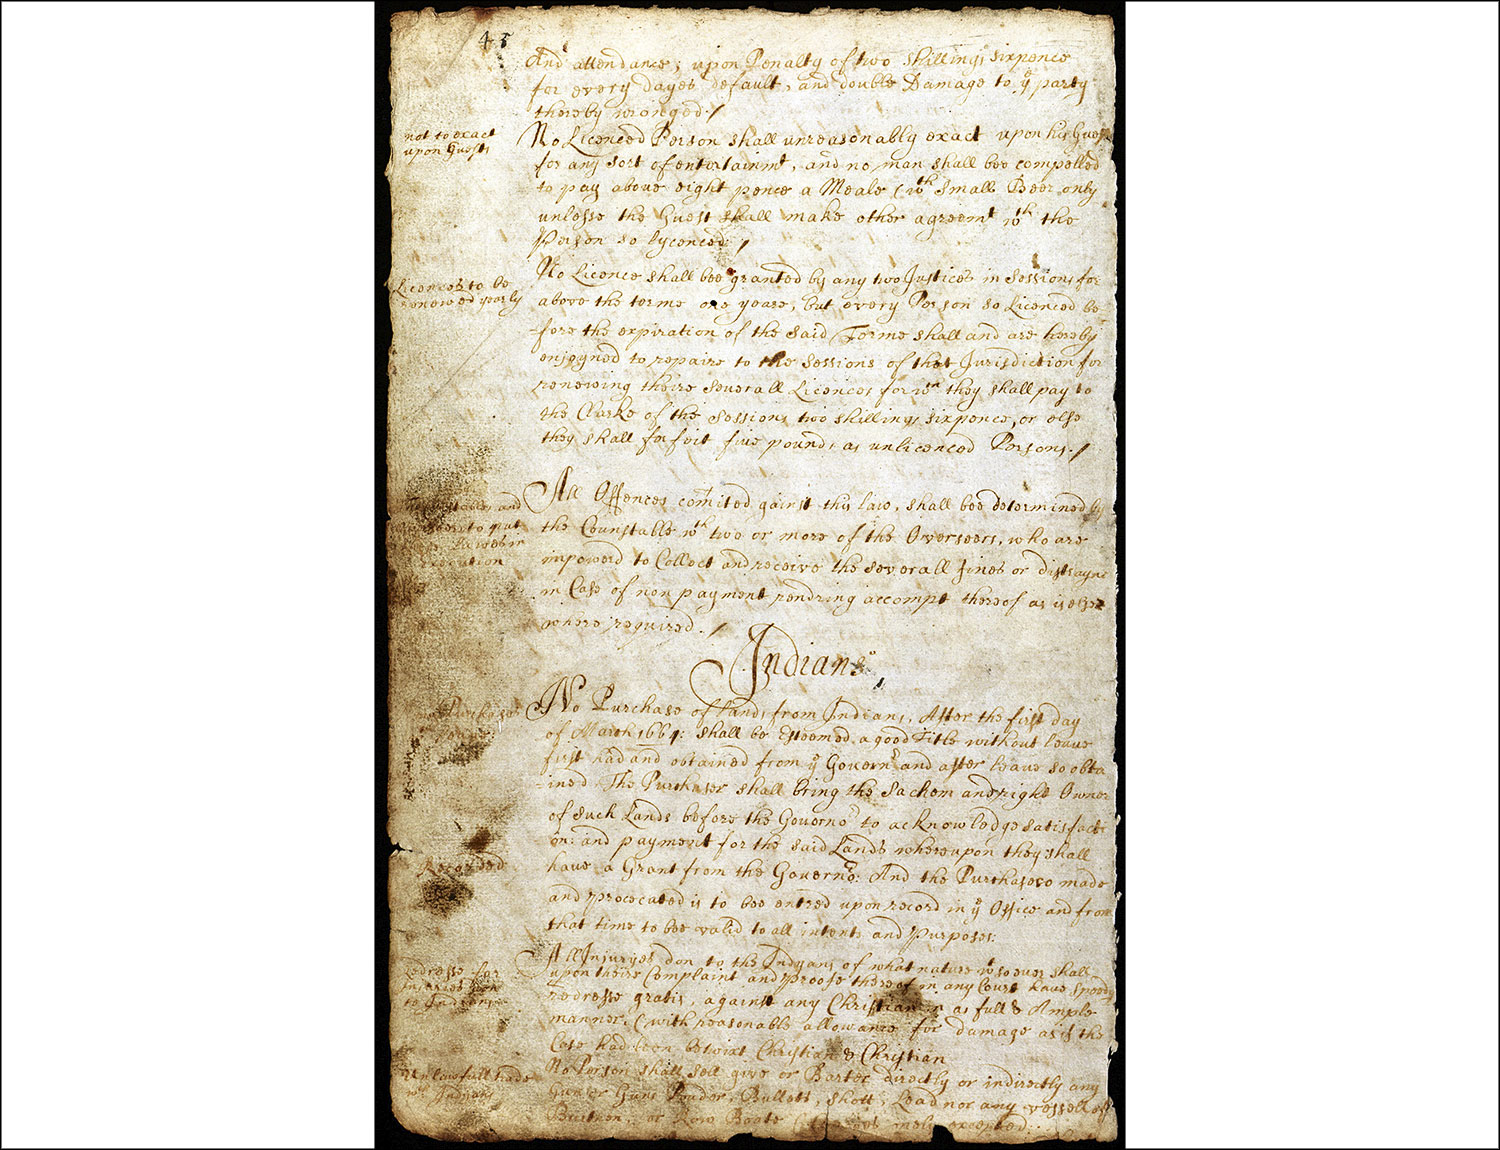 45
And attendance; upon Penalty of two shillings sixpence
for every dayes default, and double Damage to yͤ party
thereby wronged./
not to exact
upon Guests
No Licenced Person shall unreasonably exact upon his Guest
for any sort of entertainmᵗ, and no man shall bee compelled
to pay above eight pence a Meale (wᵗʰ small Beer only
unlesse the Guest shall make other agreemᵗ wᵗʰ the
Person so lycenced /
Licences to be
renewed yearly
No Licence shall bee granted by any two Justices in Sessions for
above the terme one yeare, but every Person so Licenced be
fore the expiration of the said Terme shall and are hereby
enjoyned to repaire to the Sessions of that Jurisdiction for
renewing theire severall Licences for wᶜʰ they shall pay to
the Clarke of the Sessions two shillings sixpence, or else
they shall forfeit five pounds as unlicenced Persons./
and
to put
Lawes in
execution
All Offences comited gainst this law, shall bee determined by
the Counstable wᵗʰ two or more of the Overseers, who are
impowerd to Collect and receive the severall fines or distrayne
in Case of non payment rendring accompt thereof as is else
where required./
Indians
Purchase
No Purchase of Lands from Indians, After the first day
of March 1664: shall be Esteemed a good Title without leave
first had and obtained from yͤ Governʳ and after leave so obta
ined The Purchaser shall bring the Sachem and right Owner
of such Lands before the Governoʳ to acknowledge satisfacti
on: and payment for the said Lands whereupon they shall
have a Grant from the Governoʳ: And the Purchase so made
Recorded
and prosecuted is to bee entred upon record in yͤ Office and from
that time to bee valid to all intents and Purposes:
Redresse for
injuries don
to Indians
All Injuryes don to the Indyans of what nature wᵗsoever shall
upon their Complaint and proofe thereof in any Court have speedy
redresse gratis, against any Christian in as full & Ample
manner, (with reasonable allowance for damage as if the
Case had been betwixt Christian & Christian
Unlawfull trade
wᵗʰ Indians
No Person shall sell give or Barter directly or indirectly any
Gun or Guns Powder, Bullett, shott, Lead nor any vessell of
Burthen, or Row Boate ( only excepted: